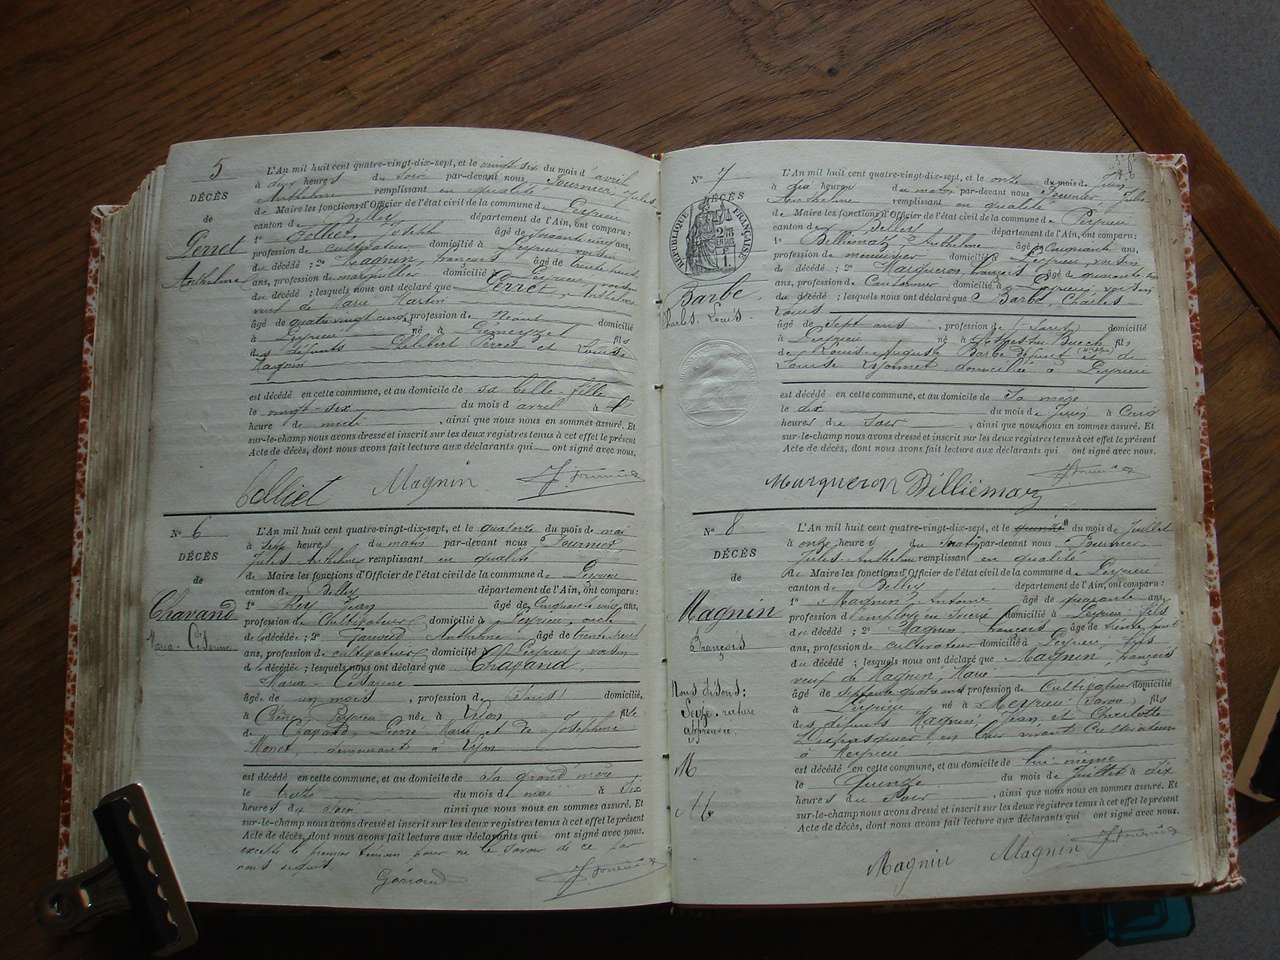 5
DÉCÈS
de
Perret
Anthelme
L'An mil huit cent quatre-vingt-dix-sept, et le vingt six du mois d'avril
à deux heures du soir par-devant nous Fournier Jules
Anthelme remplissant en qualité
de Maire les fonctions d'Officier de l'état civil de la commune de Peyrieu
canton de Belley département de l'Ain, ont comparu:
1° âgé de cinq ans,
profession de cultivateur domicilié à Peyrieu voisin
du décédé; 2° Magnin François âgé de trente huit
ans, profession de marguillier domicilié à Peyrieu voisin
du décédé; lesquels nous ont déclaré que Perret, Anthelme
veuf de Marie Martin
âgé de quatre vingt cinq, profession de Néant domicilié
à Peyrieu né à Prémeyzel fils
des défunts Philibert Perret et Louise
Magnin
est décédé en cette commune, et au domicile de sa belle fille
le vingt-six du mois d'avril à
heure de midi, ainsi que nous nous en sommes assuré. Et
sur-le-champ nous avons dressé et inscrit sur les deux registres tenus à cet effet le présent
Acte de décès, dont nous avons fait lecture aux déclarants qui ont signé avec nous.
Magnin J. Fournier
N° 6
DÉCÈS
de
Chavand
Marie Césarine
L'An mil huit cent quatre-vingt-dix-sept, et le quatorze du mois de mai
à sept heures du matin par-devant nous Fournier
Jules Anthelme remplissant en qualité
de Maire les fonctions d'Officier de l'état civil de la commune de Peyrieu
canton de Belley département de l'Ain, ont comparu:
1° Rey Jean âgé de cinquante ans,
profession de Cultivateur domicilié à Peyrieu, oncle
de la décédée; 2° Anthelme âgé de trente
ans, profession de cultivateur domicilié à Peyrieu voisin
de la décédée; lesquels nous ont déclaré que Chavand,
Marie Césarine
âgé de un mois, profession de domicilié,
à Peyrieu née à Lyon fille
de Chavand, Marie et de Joséphine
Monet, demeurant à Lyon
est décédé en cette commune, et au domicile de sa grand'mère
le treize du mois de mai à six
heures du soir, ainsi que nous nous en sommes assuré. Et
sur-le-champ nous avons dressé et inscrit sur les deux registres tenus à cet effet le présent
Acte de décès, dont nous avons fait lecture aux déclarants qui ont signé avec nous.
excepté le premier témoin pour ne le savoir de ce par
nous requis.
J. Fournier
N° 7
DÉCÈS
RÉPUBLIQUE FRANÇAISE
Barbe
Charles Louis
L'An mil huit cent quatre-vingt-dix-sept, et le onze du mois de Juin
à dix heures du matin par-devant nous Fournier, Jules
Anthelme remplissant en qualité
de Maire les fonctions d'Officier de l'état civil de la commune de Peyrieu
canton de Belley département de l'Ain, ont comparu:
1° Billiemaz, Anthelme âgé de Cinquante ans,
profession de menuisier domicilié à Peyrieu, voisin
du décédé; 2° Margueron âgé de quarante
ans, profession de Cantonnier domicilié à Peyrieu voisin
du décédé; lesquels nous ont déclaré que Barbe, Charles
Louis
âgé de sept ans, profession de domicilié
à Peyrieu né à fils
de Louis Auguste Barbe défunt et de
Louise domiciliée à Peyrieu
est décédé en cette commune, et au domicile de sa mère
le dix du mois de Juin à Cinq
heures du Soir, ainsi que nous nous en sommes assuré. Et
sur-le-champ nous avons dressé et inscrit sur les deux registres tenus à cet effet le présent
Acte de décès, dont nous avons fait lecture aux déclarants qui ont signé avec nous.
J. Fournier
Margueron Billiemaz
N° 8
DÉCÈS
de
Magnin
François
Nous disons:
Seize. rature
approuvée.
M
M
L'An mil huit cent quatre-vingt-dix-sept, et le quinze du mois de Juillet
à onze heures du matin par-devant nous Fournier
Jules-Anthelme remplissant en qualité
de Maire les fonctions d'Officier de l'état civil de la commune de Peyrieu
canton de Belley département de l'Ain, ont comparu:
1° Magnin, Antoine âgé de quarante ans,
profession d'employé domicilié à Peyrieu, fils
du décédé; 2° Magnin François âgé de trente huit
ans, profession de cultivateur domicilié à Peyrieu, fils
du décédé; lesquels nous ont déclaré que Magnin, François
veuf de Magnin, Marie
âgé de septante quatre ans profession de Cultivateur domicilié
à Peyrieu né à Meyrieu (Savoie) fils
des défunts Magnin, Jean et Charlotte
en leur vivant Cultivateurs
à Meyrieu
est décédé en cette commune, et au domicile de lui-même
le Quinze du mois de Juillet à dix
heures du Soir, ainsi que nous nous en sommes assuré. Et
sur-le-champ nous avons dressé et inscrit sur les deux registres tenus à cet effet le présent
Acte de décès, dont nous avons fait lecture aux déclarants qui ont signé avec nous.
Magnin Magnin J. Fournier